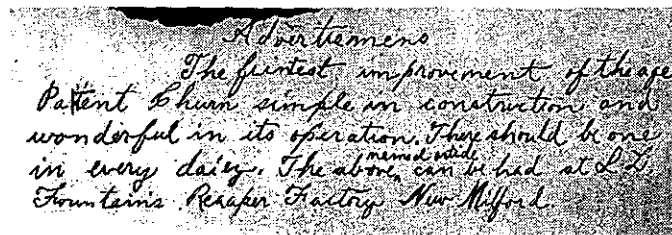 Advertiemens
The funtest improvement of the age
Pattent Churn simple in construction and
wonderful in its operation. There should be one
in every daiey. The above, named article can be had at L L
Fountains Reaaper Factory New Milford.